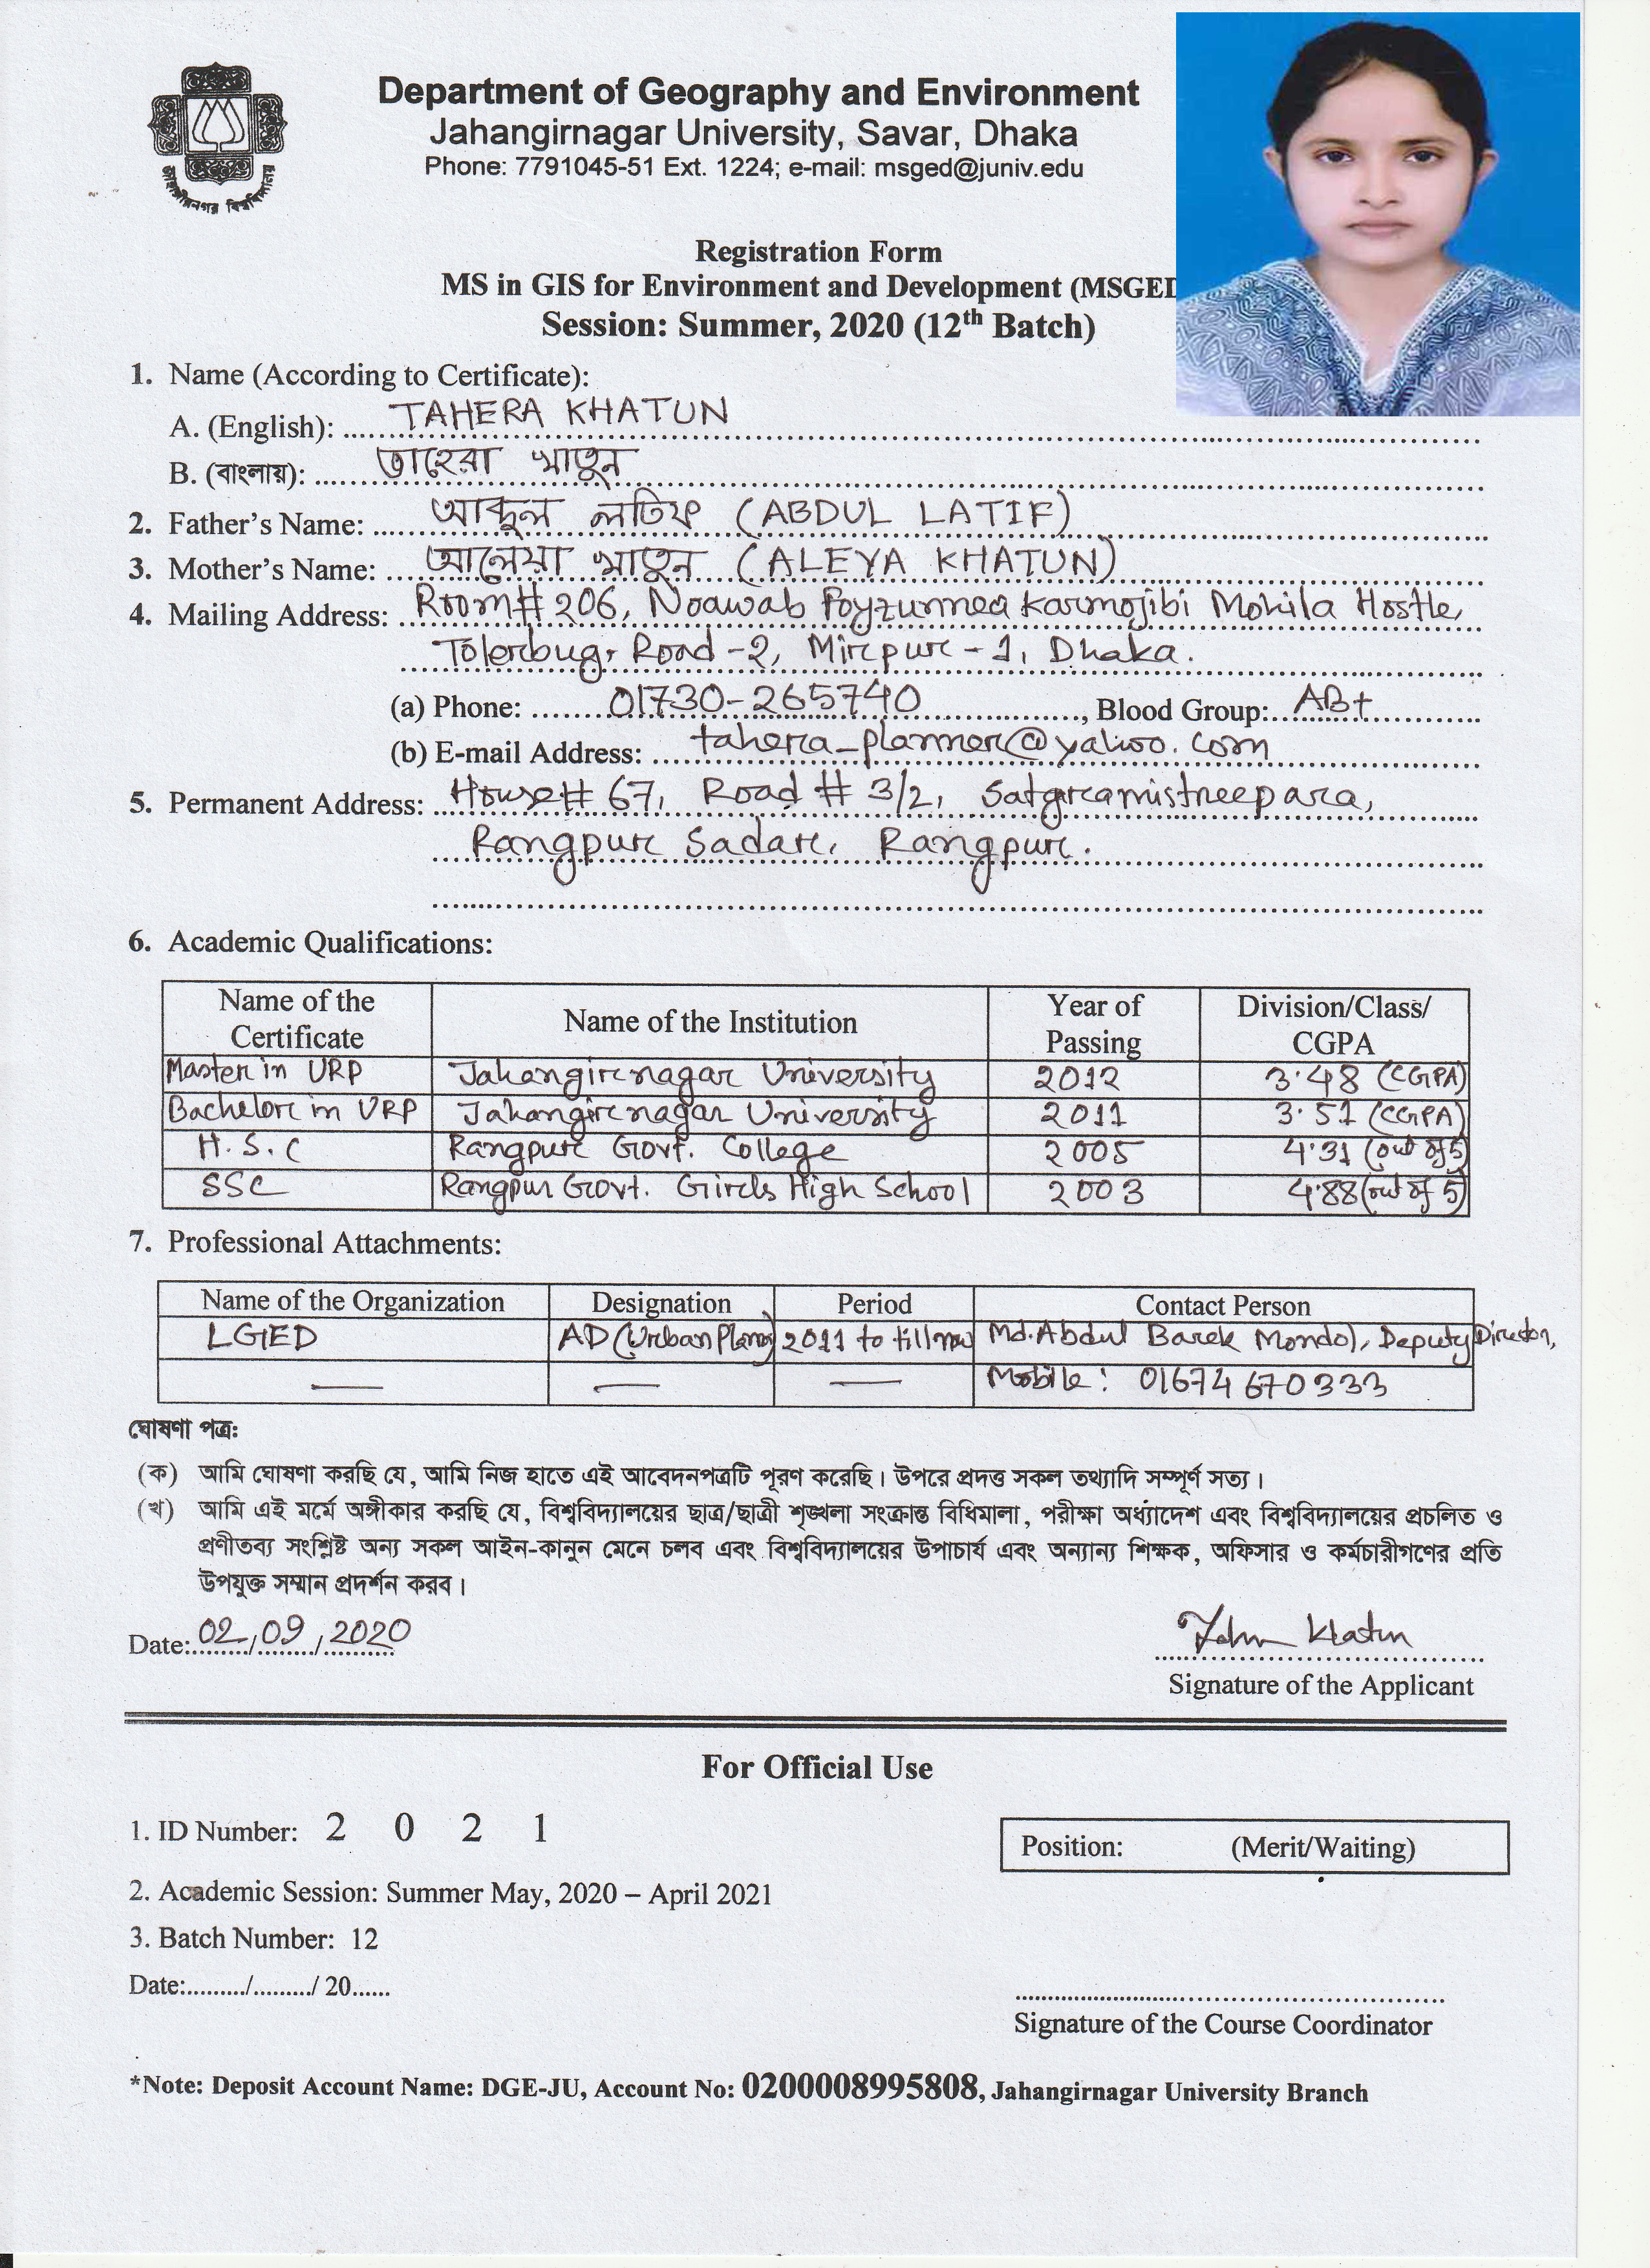 জাহাঙ্গীরনগর বিশ্ববিদ্যালয়
Department of Geography and Environment
Jahangirnagar University, Savar, Dhaka
Phone: 7791045-51 Ext. 1224; e-mail: msged@juniv.edu
Registration Form
MS in GIS for Environment and Development (MSGED
Session: Summer, 2020 (12th Batch)
1. Name (According to Certificate):
A. (English): TAHERA KHATUN
B. (বাংলায়): তাহেরা খাতুন
2. Father's Name: আব্দুল লতিফ (ABDUL LATIF)
3. Mother's Name: আলেয়া খাতুন (ALEYA KHATUN)
4. Mailing Address: Room# 206, Noawab Foyzunnea Karmojibi Mohila Hostle,
Tolerbug, Road-2, Mirpur-1, Dhaka.
(a) Phone: 01730-265740, Blood Group: AB+
(b) E-mail Address: tahera_planner@yahoo.com
5. Permanent Address: House# 67, Road # 3/2, Satgramistreepara,
Rangpur Sadar, Rangpur.
6. Academic Qualifications:
Name of the Certificate Name of the Institution Year of Passing Division/Class/CGPA
Master in URP Jahangirnagar University 2012 3.48 (CGPA)
Bachelor in URP Jahangirnagar University 2011 3.51 (CGPA)
H.S.C Rangpur Govt. College 2005 4.31 (out of 5)
SSC Rangpur Govt. Girls High School 2003 4.88 (out of 5)
7. Professional Attachments:
Name of the Organization Designation Period Contact Person
LGED AD (Urban Planning) 2011 to till now Md. Abdul Barek Mondol, Deputy Director,
— — — Mobile: 01674670333
ঘোষণা পত্র:
(ক) আমি ঘোষণা করছি যে, আমি নিজ হাতে এই আবেদনপত্রটি পূরণ করেছি। উপরে প্রদত্ত সকল তথ্যাদি সম্পূর্ণ সত্য।
(খ) আমি এই মর্মে অঙ্গীকার করছি যে, বিশ্ববিদ্যালয়ের ছাত্র/ছাত্রী শৃঙ্খলা সংক্রান্ত বিধিমালা, পরীক্ষা অধ্যাদেশ এবং বিশ্ববিদ্যালয়ের প্রচলিত ও
প্রণীতব্য সংশ্লিষ্ট অন্য সকল আইন-কানুন মেনে চলব এবং বিশ্ববিদ্যালয়ের উপাচার্য এবং অন্যান্য শিক্ষক, অফিসার ও কর্মচারীগণের প্রতি
উপযুক্ত সম্মান প্রদর্শন করব।
Date: 02/09/2020
Khatun
Signature of the Applicant
For Official Use
1. ID Number: 2 0 2 1
Position: (Merit/Waiting)
2. Academic Session: Summer May, 2020 – April 2021
3. Batch Number: 12
Date:........./........./ 20......
Signature of the Course Coordinator
*Note: Deposit Account Name: DGE-JU, Account No: 0200008995808, Jahangirnagar University Branch